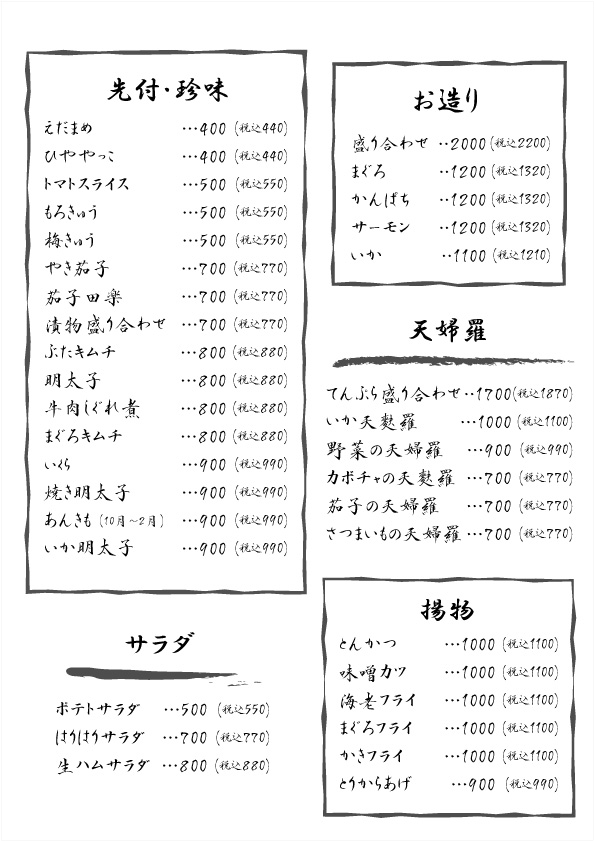 先付・珍味
えだまめ …400 (税込440)
ひややっこ …400 (税込440)
トマトスライス …500 (税込550)
もろきゅう …500 (税込550)
梅きゅう …500 (税込550)
やき茄子 …700 (税込770)
茄子田楽 …700 (税込770)
漬物盛り合わせ …700 (税込770)
ぶたキムチ …800 (税込880)
明太子 …800 (税込880)
牛肉しぐれ煮 …800 (税込880)
まぐろキムチ …800 (税込880)
いくら …900 (税込990)
焼き明太子 …900 (税込990)
あんきも (10月〜2月) …900 (税込990)
いか明太子 …900 (税込990)
サラダ
ポテトサラダ …500 (税込550)
はりはりサラダ …700 (税込770)
生ハムサラダ …800 (税込880)
お造り
盛り合わせ ‥2000 (税込2200)
まぐろ ‥1200 (税込1320)
かんぱち ‥1200 (税込1320)
サーモン ‥1200 (税込1320)
いか ‥1100 (税込1210)
天婦羅
てんぷら盛り合わせ‥1700 (税込1870)
いか天麩羅 …1000 (税込1100)
野菜の天婦羅 …900 (税込990)
カボチャの天麩羅 …700 (税込770)
茄子の天婦羅 …700 (税込770)
さつまいもの天婦羅 …700 (税込770)
揚物
とんかつ …1000 (税込1100)
味噌カツ …1000 (税込1100)
海老フライ …1000 (税込1100)
まぐろフライ …1000 (税込1100)
かきフライ …1000 (税込1100)
とりからあげ …900 (税込990)